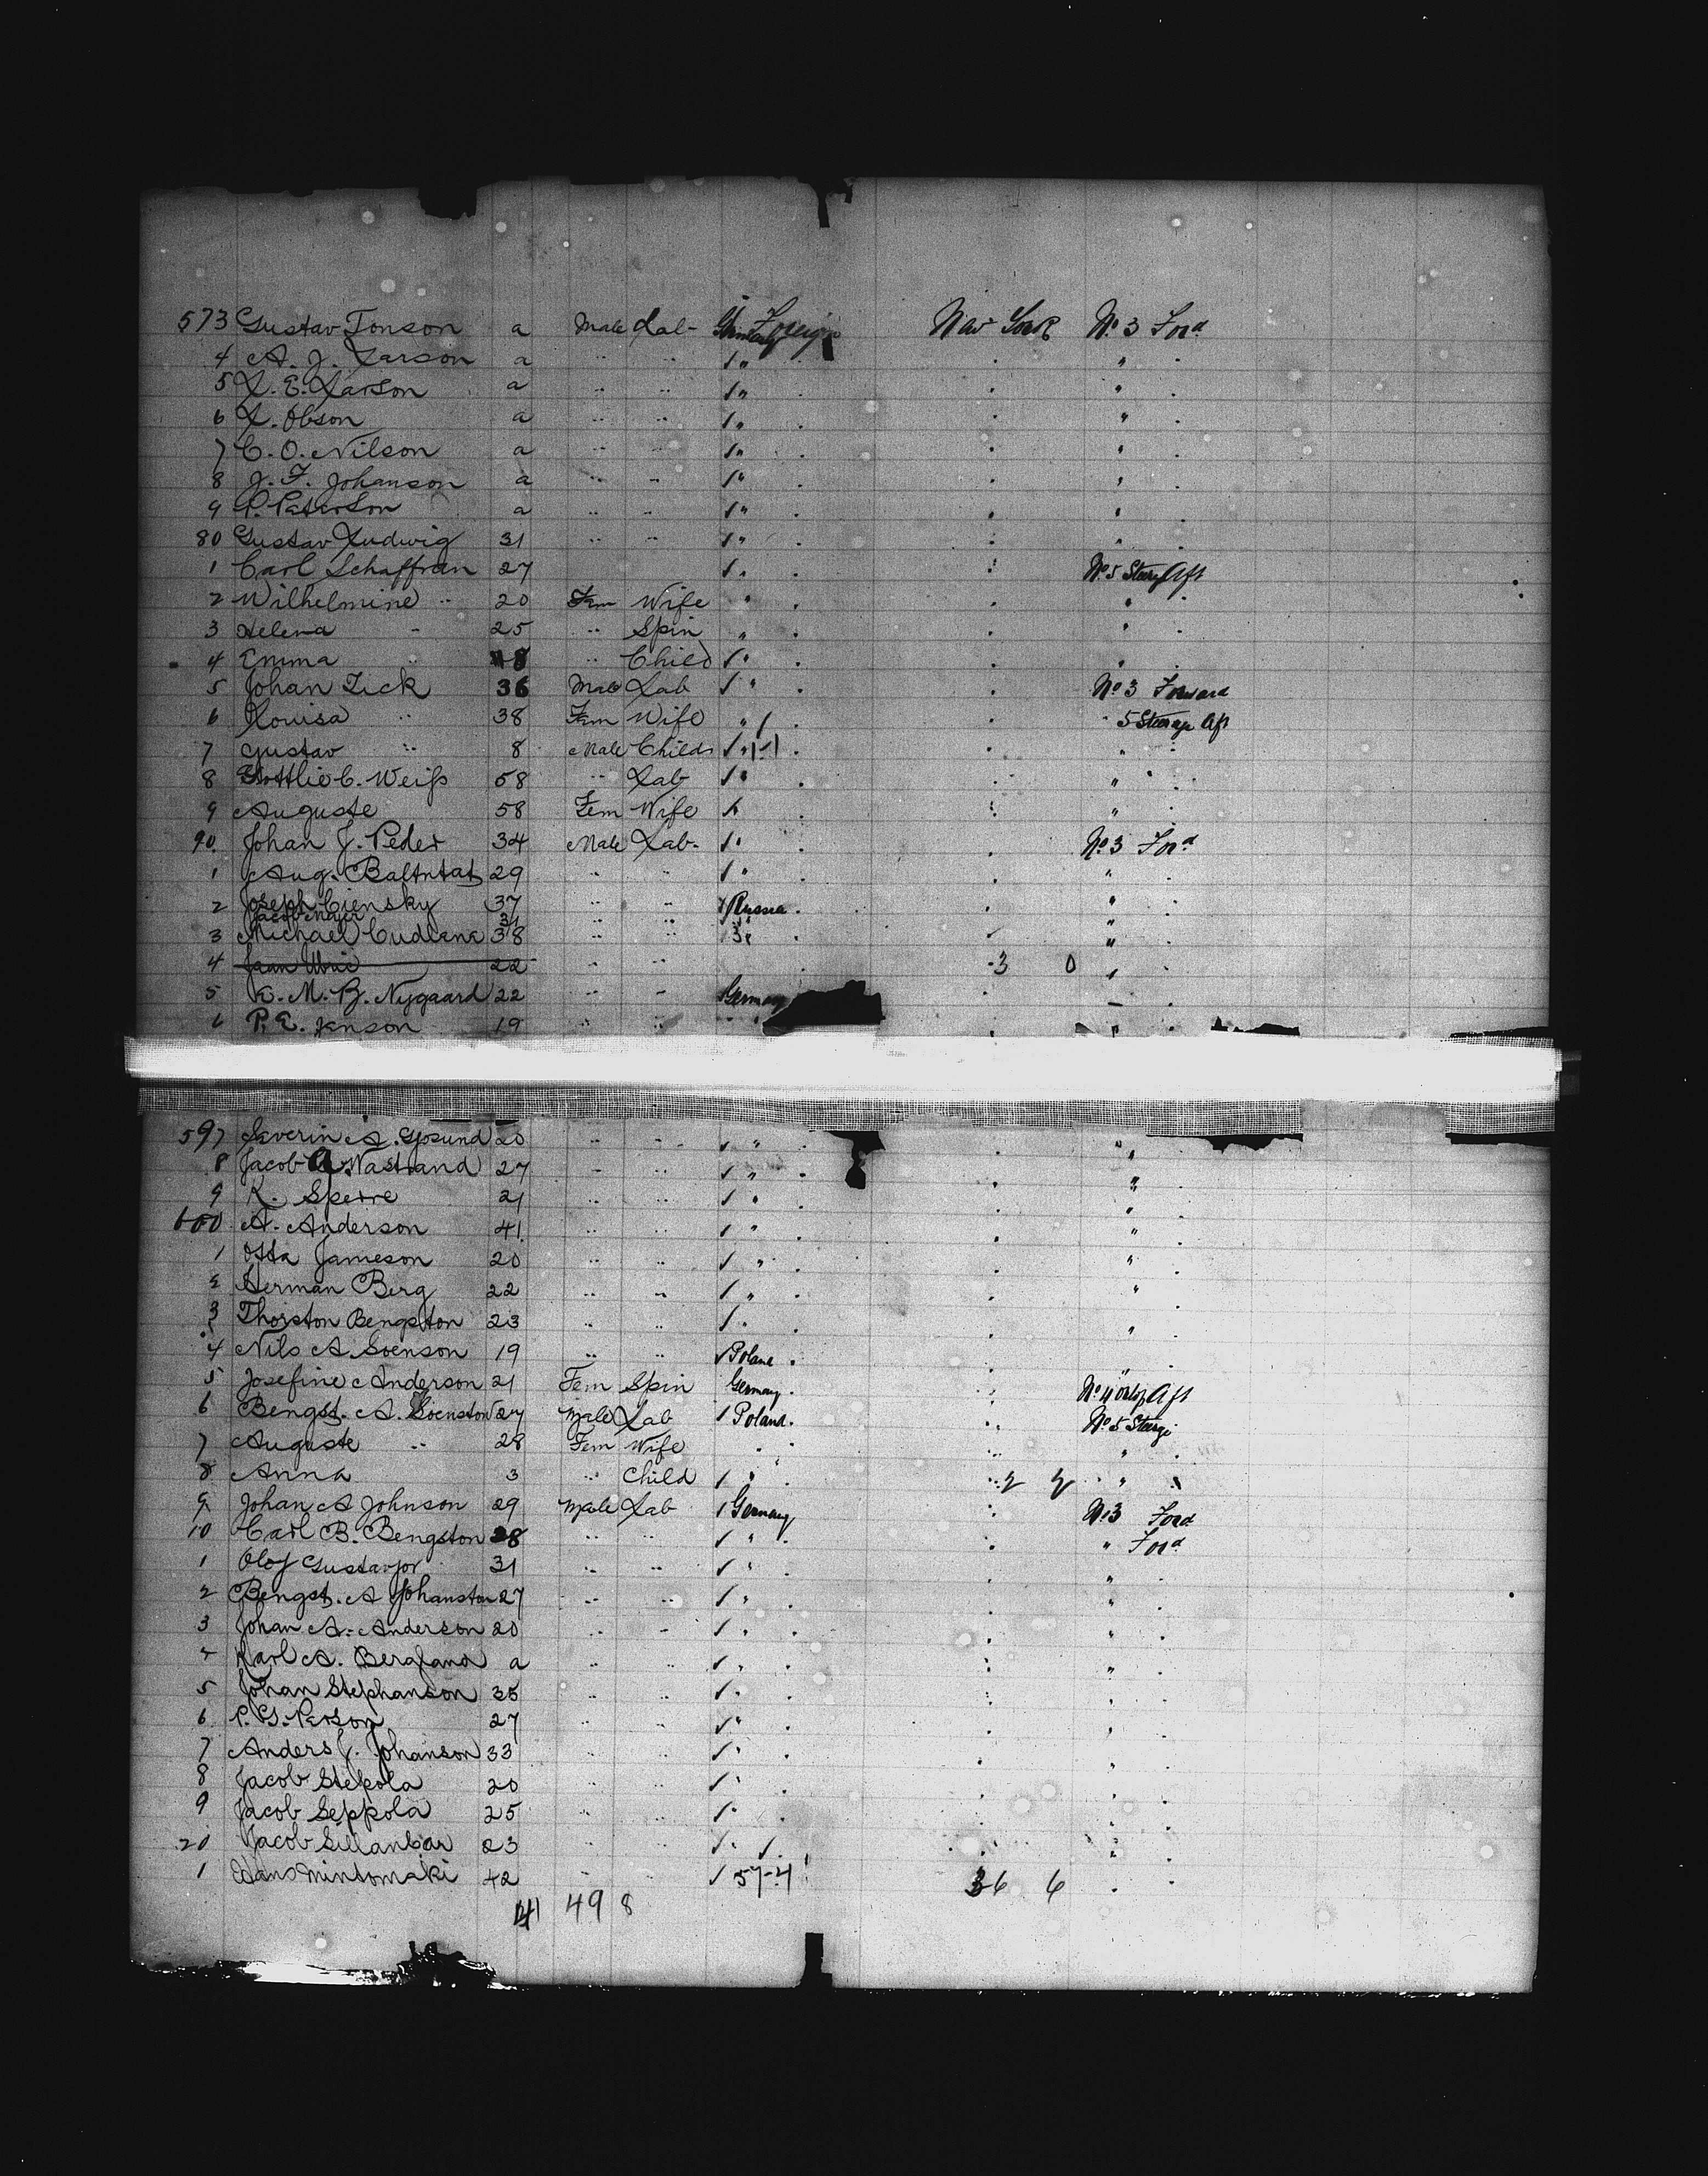 573 Gustav Jonson a Male Lab- Germany Foreign New York No 3 Ford
4 A. J. Larson a " " " "
5 L. E. Larson a " " " "
6 L. Olson a " " " "
7 C. O. Nilson a " " " "
8 J. F. Johanson a " " " "
9 P. Peterson a " " " "
80 Gustav Ludwig 31 " " " "
1 Carl Schaffran 27 " No 5 Steerg Aft
2 Wilhelmine " 20 Fem Wife " "
3 Helena " 25 " Spin " "
4 Emma " 8 " Child " "
5 Johan Zick 36 Male Lab " No 3 Forward
6 Louisa " 38 Fem Wife " 5 Steerage Aft
7 Gustav " 8 Male Child " "
8 Gottlieb C. Weiss 58 " Lab " "
9 Auguste 58 Fem Wife " "
90 Johan J. Peder 34 Male Lab. " No 3 Ford
1 Aug. Baltutat 29 " " " "
2 Joseph Ciensky 37 " " Russia "
Jacob Mayer 31 " "
3 Michael Cudlana 38 " " "
4 22 " " 3 0 "
5 K. M. B. Nygaard 22 " " Germany "
6 P. E. Janson 19 " " "
597 Severin A. Gjosund 20 " " " "
8 Jacob A. Nastrand 27 " " " "
9 K. Sperre 21 " " " "
600 A. Anderson 41 " " " "
1 Otta Jameson 20 " " " "
2 Herman Berg 22 " " " "
3 Thorston Bengston 23 " " " "
4 Nils A. Svenson 19 " " Poland
5 Josefine Anderson 21 Fem Spin Germany. No 4 Aft
6 Bengst. A. Svenston 27 Male Lab Poland. No 5 Steerge
7 Auguste " 28 Fem Wife " "
8 Anna 3 " Child " 2 2 "
9 Johan A Johnson 29 Male Lab Germany No 3 Ford
10 Carl B. Bengston 28 " " " " Ford
1 Olof 31 " " " "
2 Bengst. A Johanston 27 " " " "
3 Johan A. Anderson 20 " " " "
4 Karl A. a " " " "
5 Johan Stephanson 35 " " " "
6 P. G. Person 27 " " " "
7 Anders J. Johanson 33 " " " "
8 Jacob Stepola 20 " " " "
9 Jacob Seppola 25 " " " "
20 Jacob 23 " " " "
1 Hans 42 " " 57-4 36 6
41 49 8